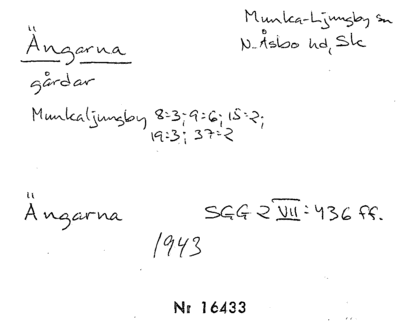 Munka-Ljungby sn
Ängarna N-Åsbo hd, Sk
gårdar
Munkaljungby 8:3; 9:6; 15:2;
19:3; 37:2
Ängarna SGG 2 VII: 436 ff.
1943
Nr 16433